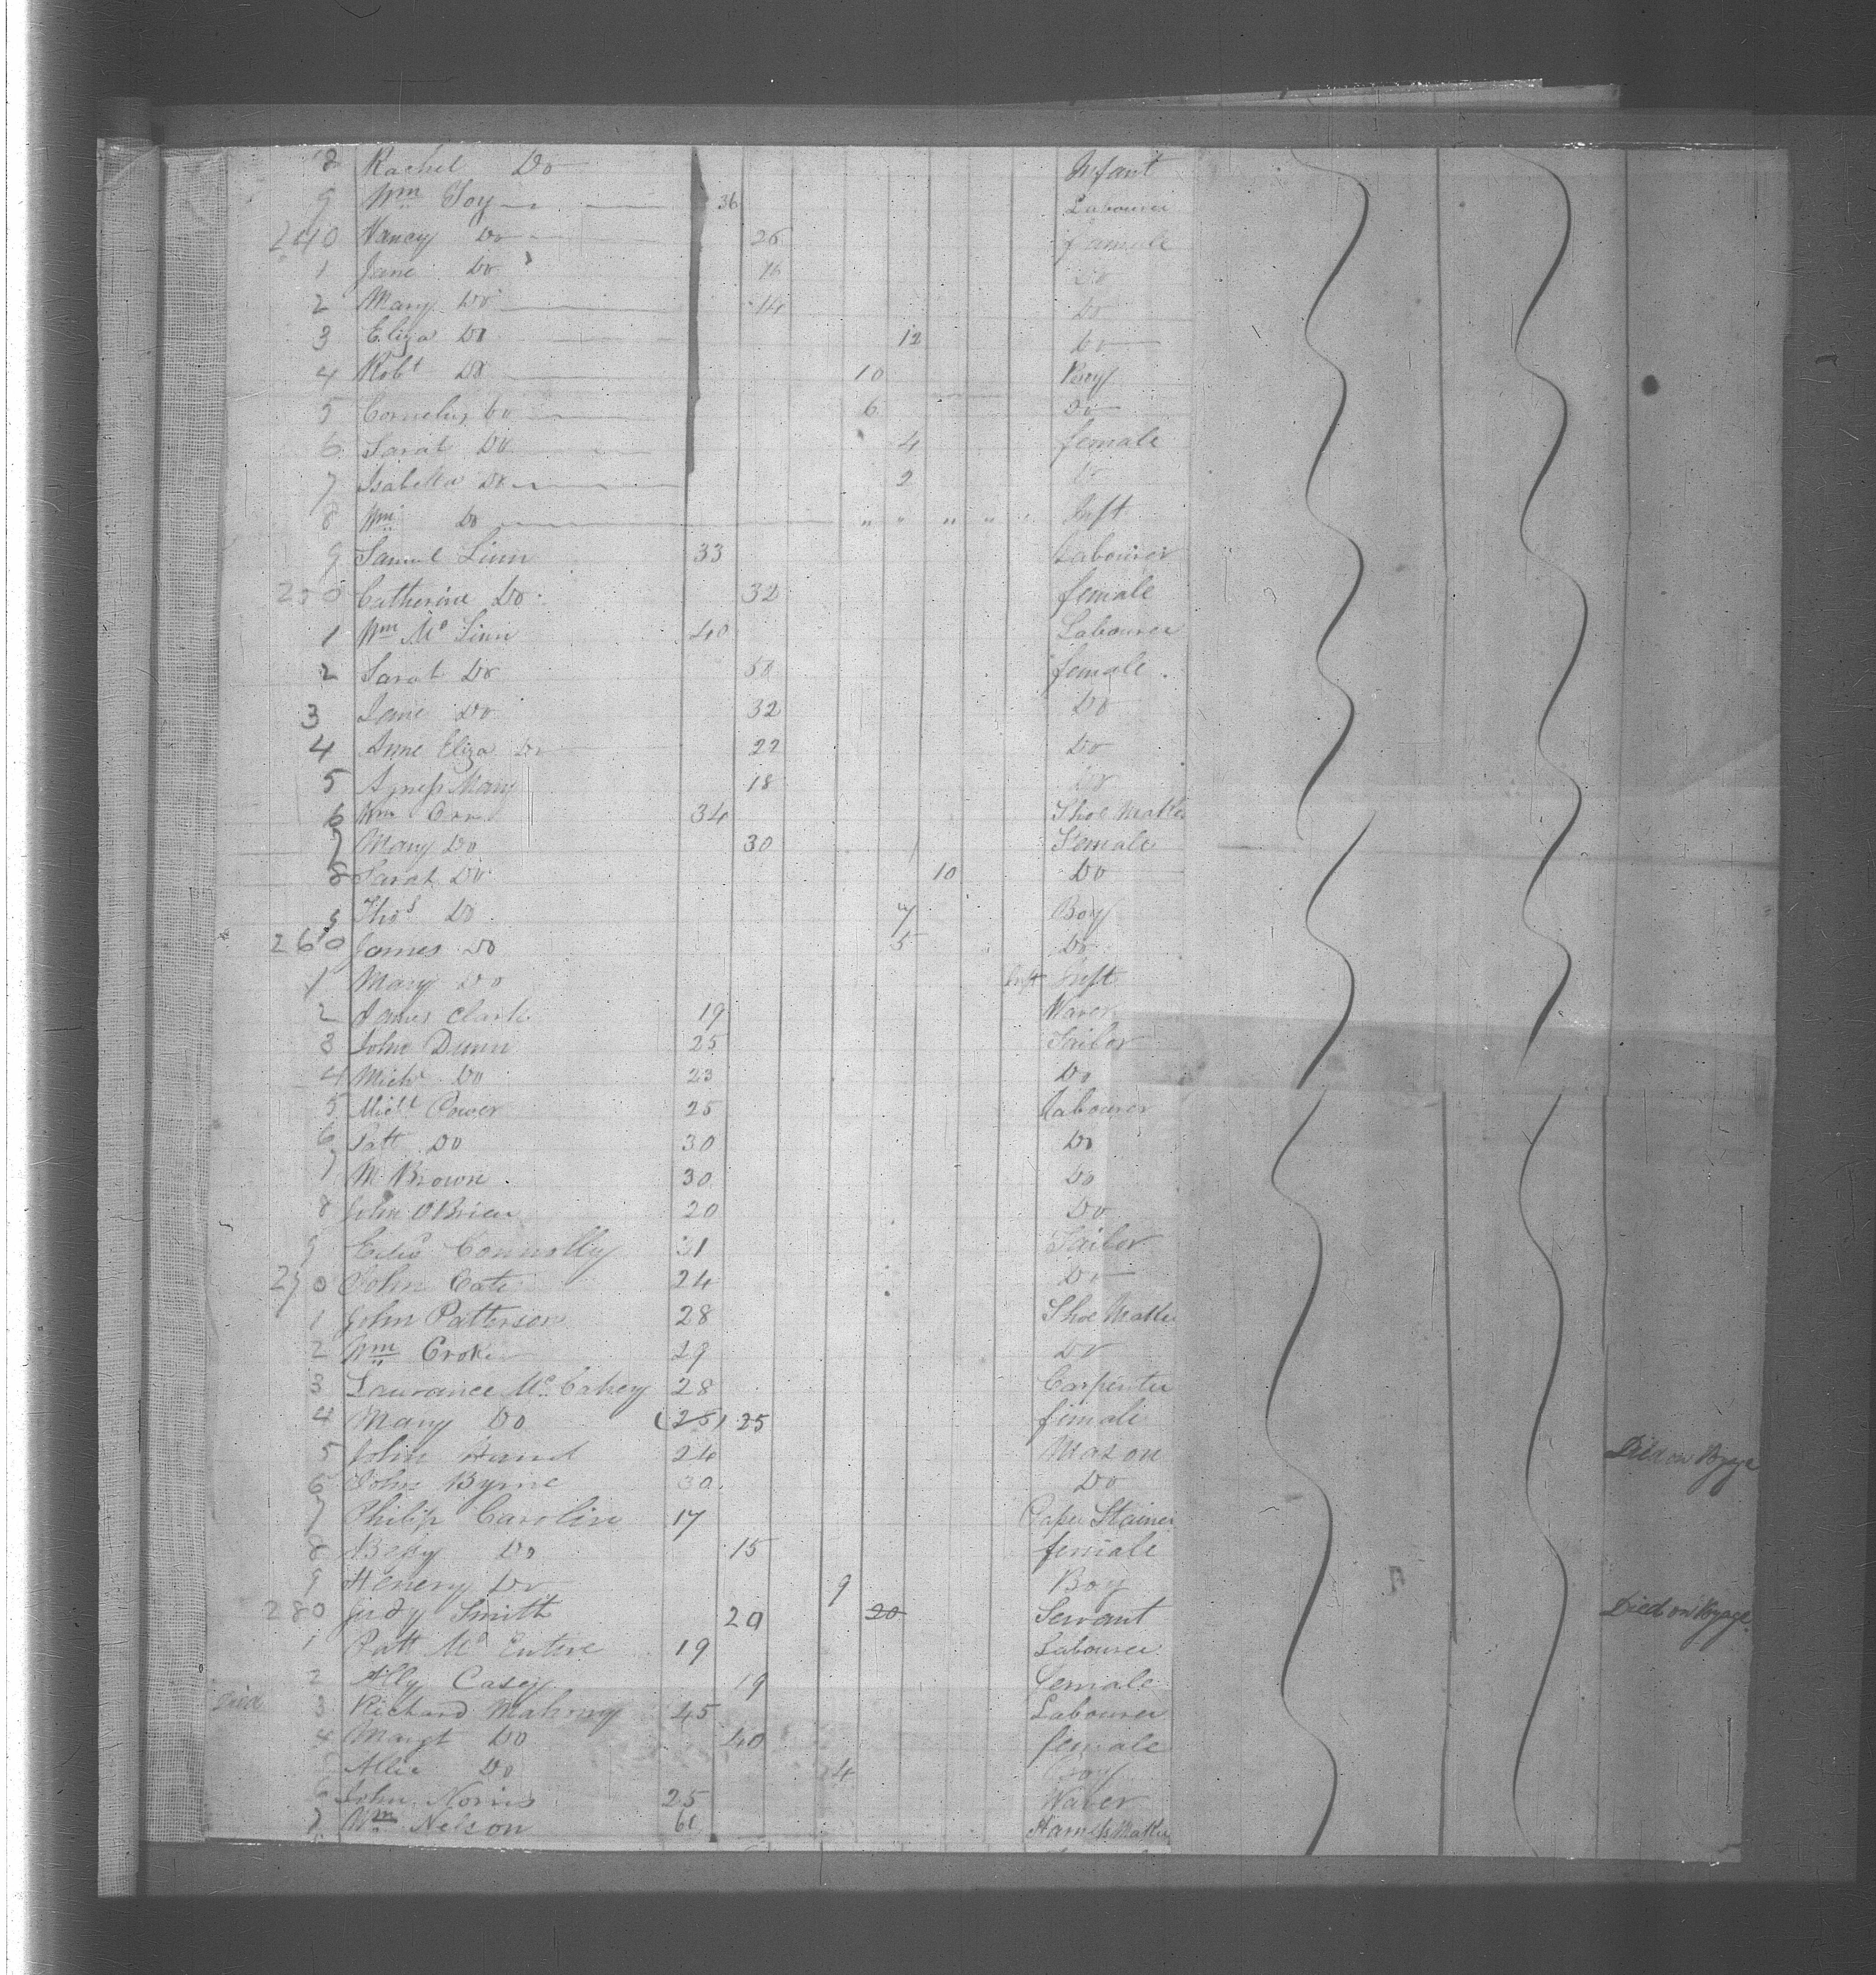 8 Rachel Do Infant
9 Wm Foy 36 Labourer
240 Nancy Do 26 female
1 Jane Do 16 Do
2 Mary Do 14 Do
3 Eliza Do 12 Do
4 Robt Do 10 Boy
5 Cornelius Do 6 Do
6 Sarah Do 4 female
7 Isabella Do 2 Do
8 Wm Do " " " " Inft
9 Samuel Linn 33 Labourer
250 Catherine Do 32 female
1 Wm Mc Linn 40 Labourer
2 Sarah Do 58 female
3 Jane Do 32 Do
4 Anne Eliza Do 22 Do
5 Agness Mary 18 Do
6 Wm Orr 34 Shoe Maker
7 Mary Do 30 Female
8 Sarah Do 10 Do
9 Thos Do 7 Boy
260 James Do 5 Do
1 Mary Do Inft Inft
2 James Clark 19 Waver
3 John Dunn 25 Tailor
4 Michl Do 23 Do
5 Michl Power 25 Labourer
6 Patt Do 30 Do
7 M Brown 30 Do
8 John O Brien 20 Do
9 Connolly 31 Tailor
270 John Cate 24 Do
1 John Patterson 28 Shoe Maker
2 Wm Croke 29 Do
3 Laurance Mc Cahey 28 Carpenter
4 Mary Do (25) 25 female
5 John Hand 24 Mason Died on Voyage
6 John Byrne 30 Do
7 Philip Carolin 17 Paper Stainer
8 Bessy Do 15 female
9 Henery Do 9 Boy
280 Judy Smith 20 20 Servant Died on Voyage
1 Patt Mc Entire 19 Labourer
2 Ally Casey 19 Female
Died 3 Richard Mahony 45 Labourer
4 Margt Do 40 female
Allic Do 4 Boy
6 John Norris 25 Waver
7 Wm Nelson 61 Harness Maker